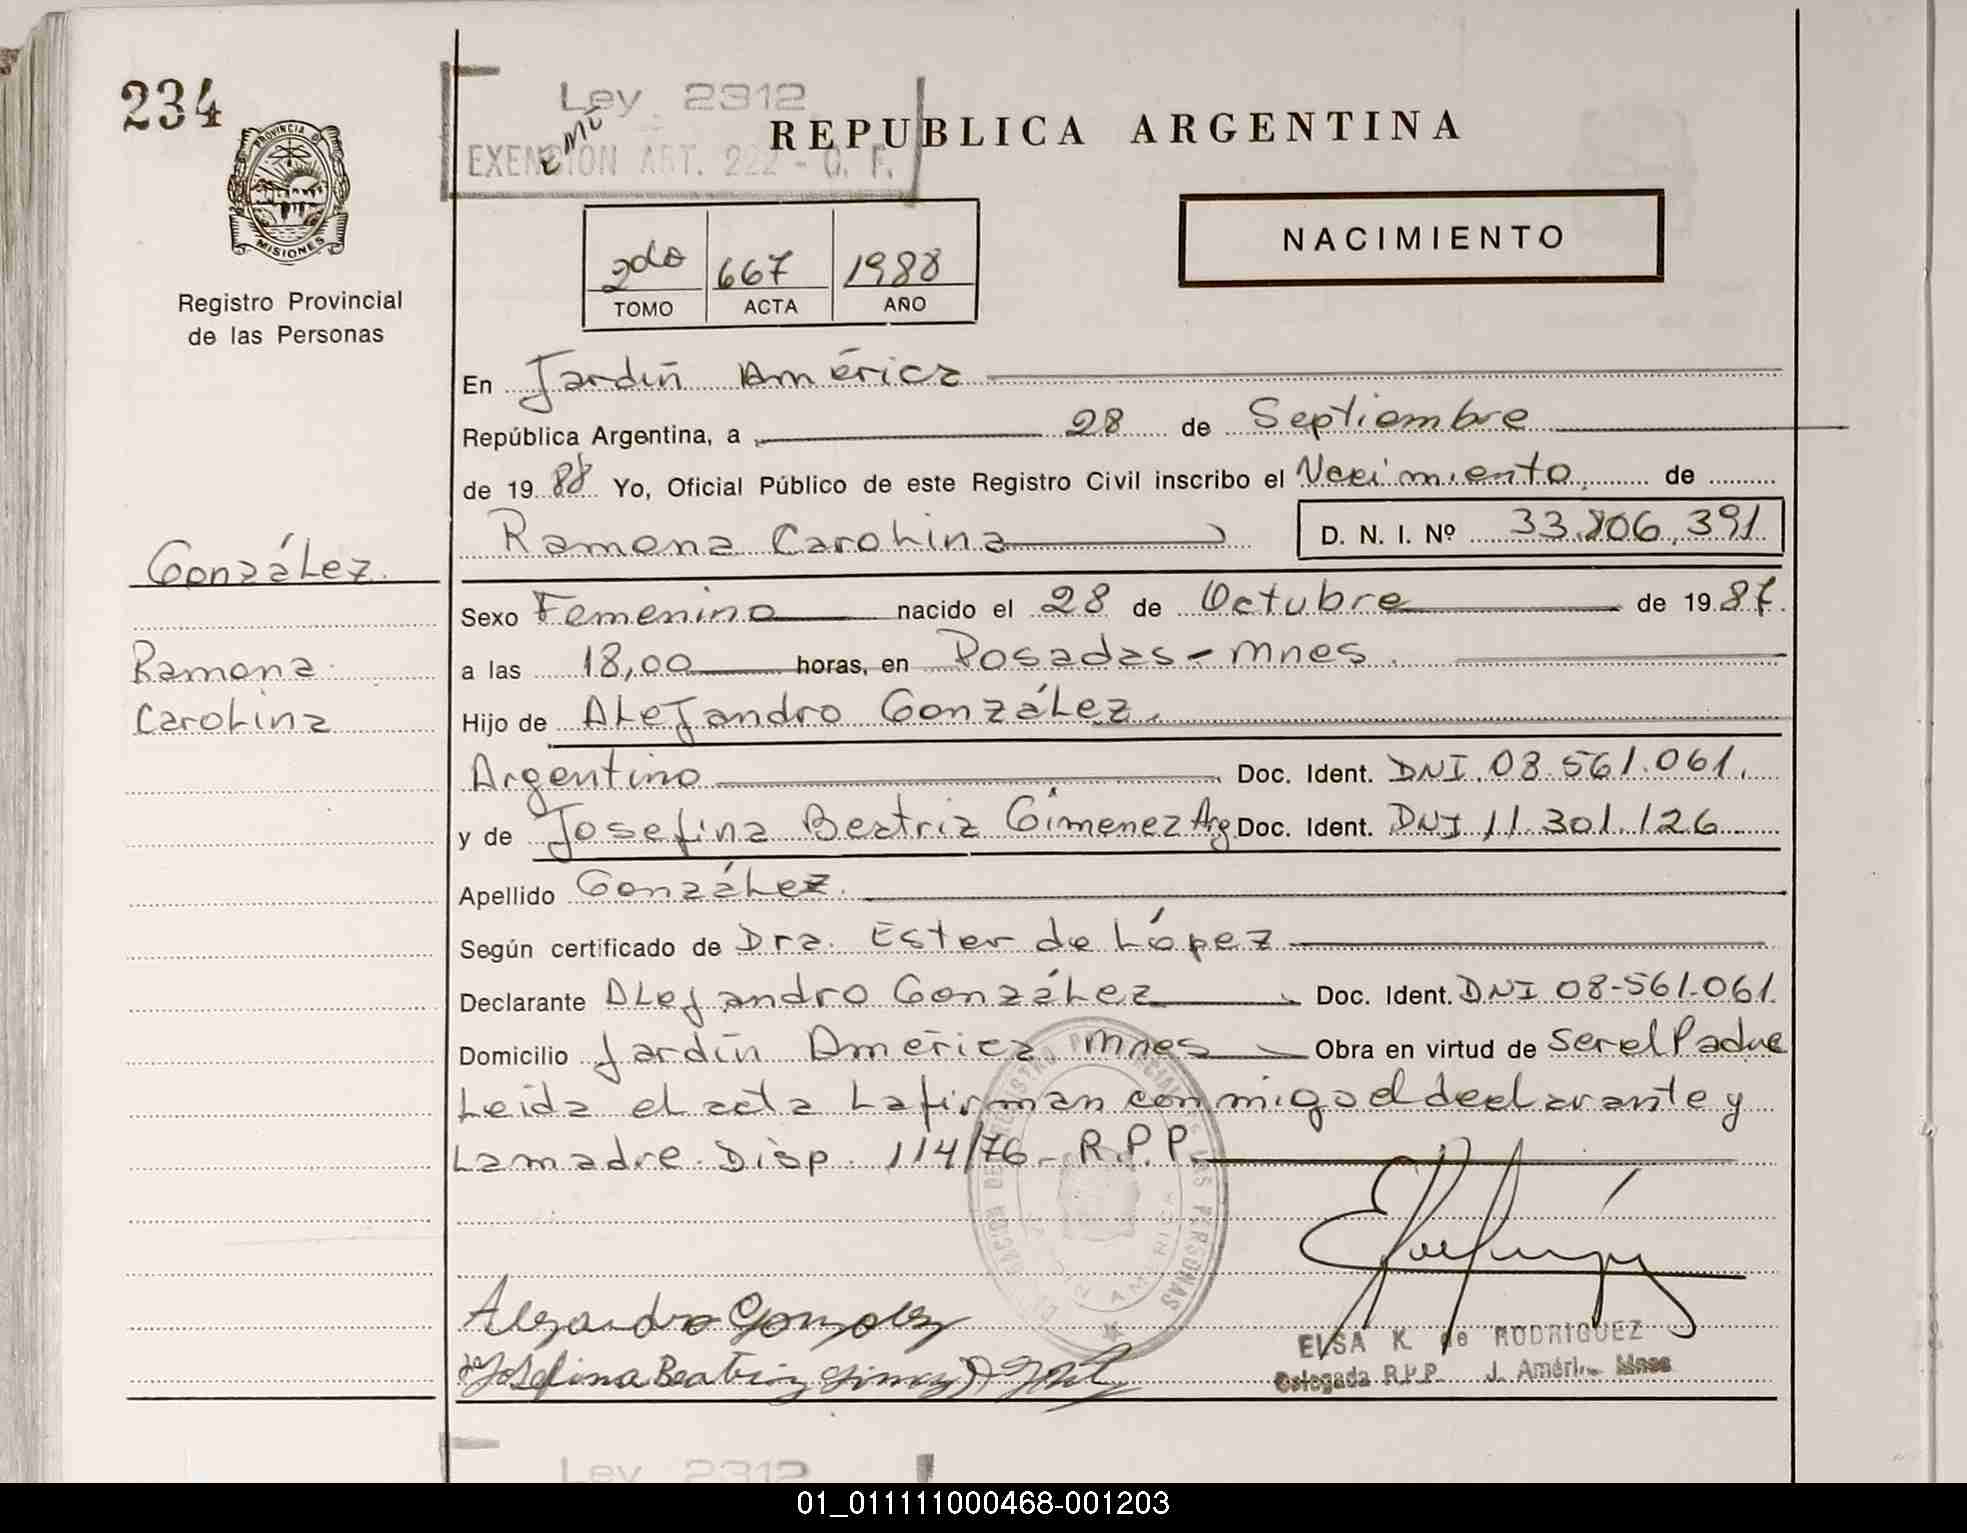 234
Ley 2312
EXENCION ART. 222 - C. F.
REPUBLICA ARGENTINA
PROVINCIA DE
MISIONES
Registro Provincial
de las Personas
NACIMIENTO
2do 667 1988
TOMO ACTA AÑO
En Jardín América
República Argentina, a 28 de Septiembre
de 19 88 Yo, Oficial Público de este Registro Civil inscribo el Nacimiento de
Ramona Carolina D. N. I. Nº 33.806.391
González
Ramona
Carolina
Sexo Femenino nacido el 28 de Octubre de 19 87.
a las 18,00 horas, en Posadas - Mnes.
Hijo de Alejandro González.
Argentino Doc. Ident. DNI. 08.561.061.
y de Josefina Beatriz Gimenez Arg Doc. Ident. DNI 11.301.126
Apellido González.
Según certificado de Dra. Ester de López
Declarante Alejandro González Doc. Ident. DNI 08-561.061.
Domicilio Jardín América Mnes Obra en virtud de ser el Padre
Leida el acta la firman conmigo el declarante y
la madre. Disp. 114/76 - R.P.P.
Alejandro Gonzalez
Josefina Beatriz
ELSA K. de RODRIGUEZ
Delegada R.P.P. J. Améri. Mnes
Ley 2312
01_011111000468-001203